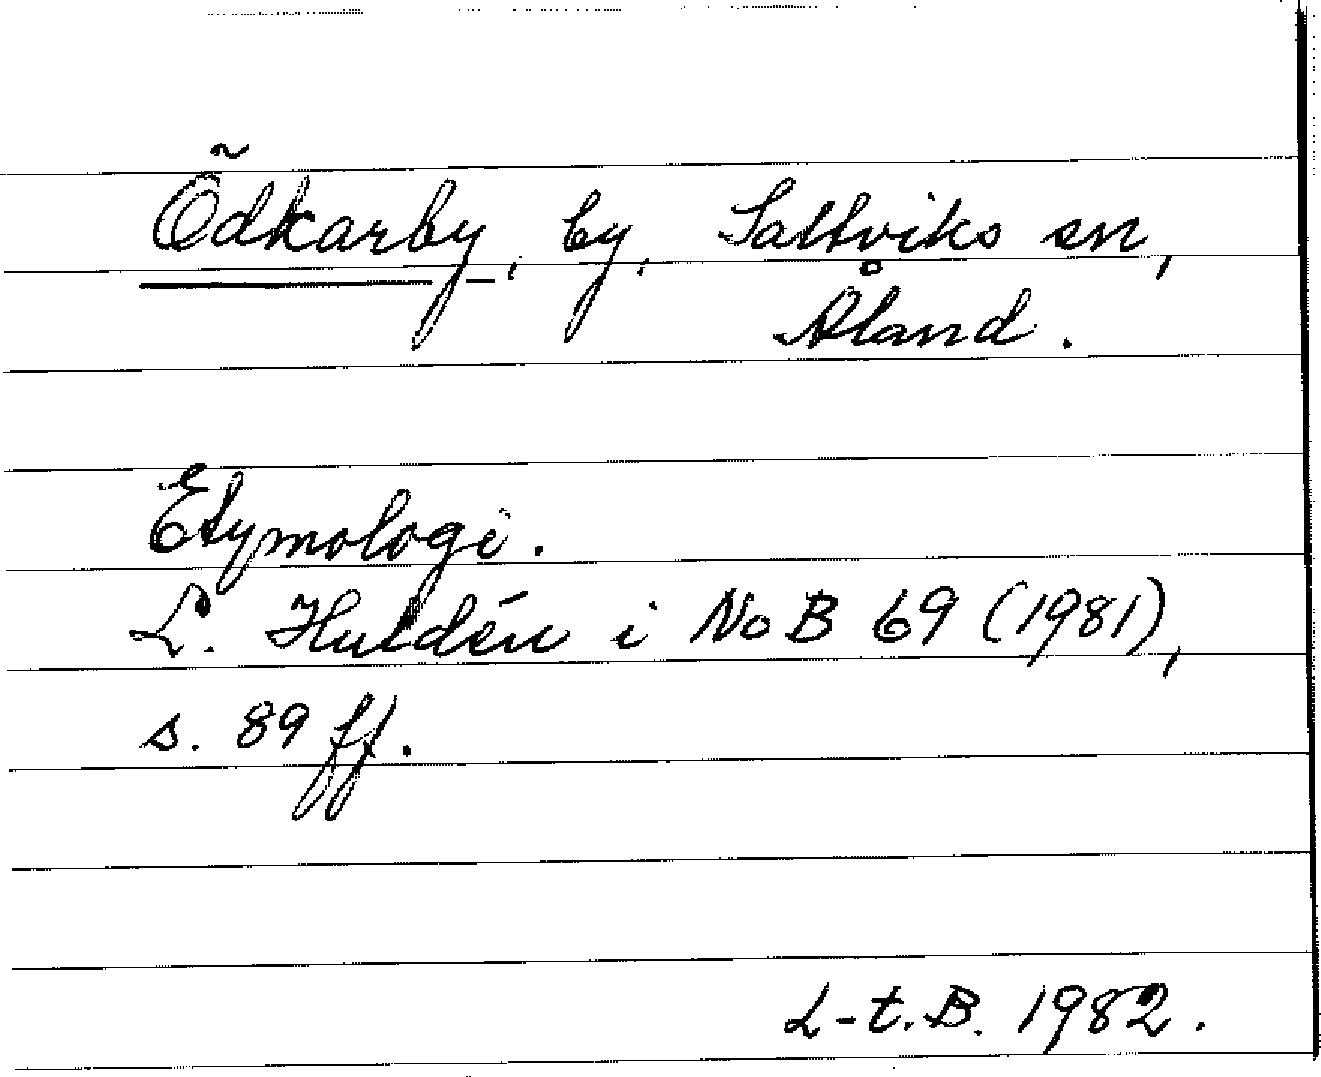 Ödkarby, by, Saltviks sn,
Åland.
Etymologi.
L. Huldén i NoB 69 (1981),
s. 89 ff.
L-t.B. 1982.